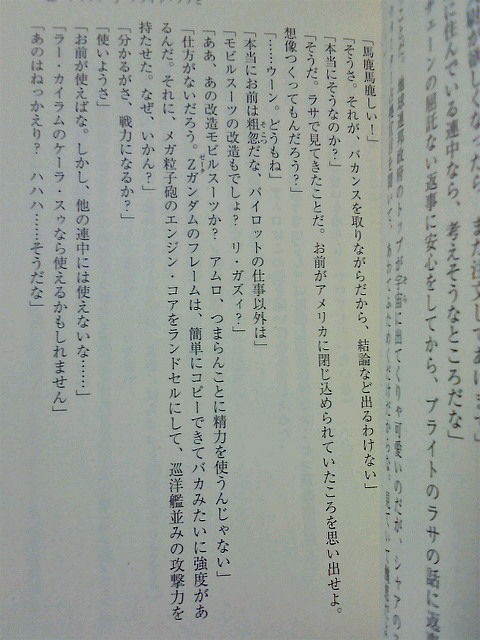 に住んでいる連中なら、考えそうなところだな」
チェーンの屈託ない返事に安心をしてから、ブライトのラサの話に返
「馬鹿馬鹿しい！」
「そうさ。それが、バカンスを取りながらだから、結論など出るわけない」
「本当にそうなのか？」
「そうだ。ラサで見てきたことだ。お前がアメリカに閉じ込められていたころを思い出せよ。
想像つくってもんだろう？」
「……ウーン。どうもね」
「本当にお前は粗忽だな、パイロットの仕事以外は」
「モビルスーツの改造もでしょ？　リ・ガズィ？」
「ああ、あの改造モビルスーツか？　アムロ、つまらんことに精力を使うんじゃない」
「仕方がないだろう。Ζガンダムのフレームは、簡単にコピーできてバカみたいに強度があ
るんだ。それに、メガ粒子砲のエンジン・コアをランドセルにして、巡洋艦並みの攻撃力を
持たせた。なぜ、いかん？」
「分かるがさ、戦力になるか？」
「使いようさ」
「お前が使えばな。しかし、他の連中には使えないな……」
「ラー・カイラムのケーラ・スゥなら使えるかもしれません」
「あのはねっかえり？　ハハハ……そうだな」